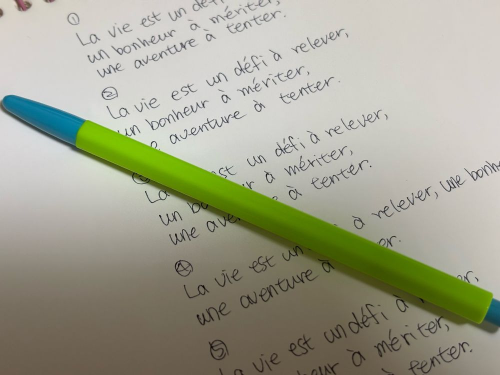 ①
La vie est un défi
un bonheur à mériter,
une aventure à tenter.
②
La vie est un défi à relever,
un bonheur à mériter,
aventure à tenter.
est un défi à relever,
un à mériter,
une à tenter.
④
La vie est un à relever, une
une aventure à
⑤
La vie est un défi à
à mériter,
à tenter.